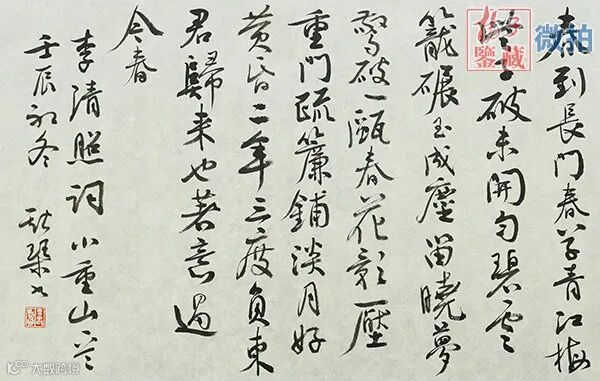 春到長門春草青江梅
些子破未開勻碧雲
籠碾玉成塵留曉夢
驚破一甌春花影壓
重門疏簾鋪淡月好
黃昏二年三度負東
君歸來也著意過
今春
李清照詞小重山
壬辰初冬
鑒藏
微拍
大数跨境